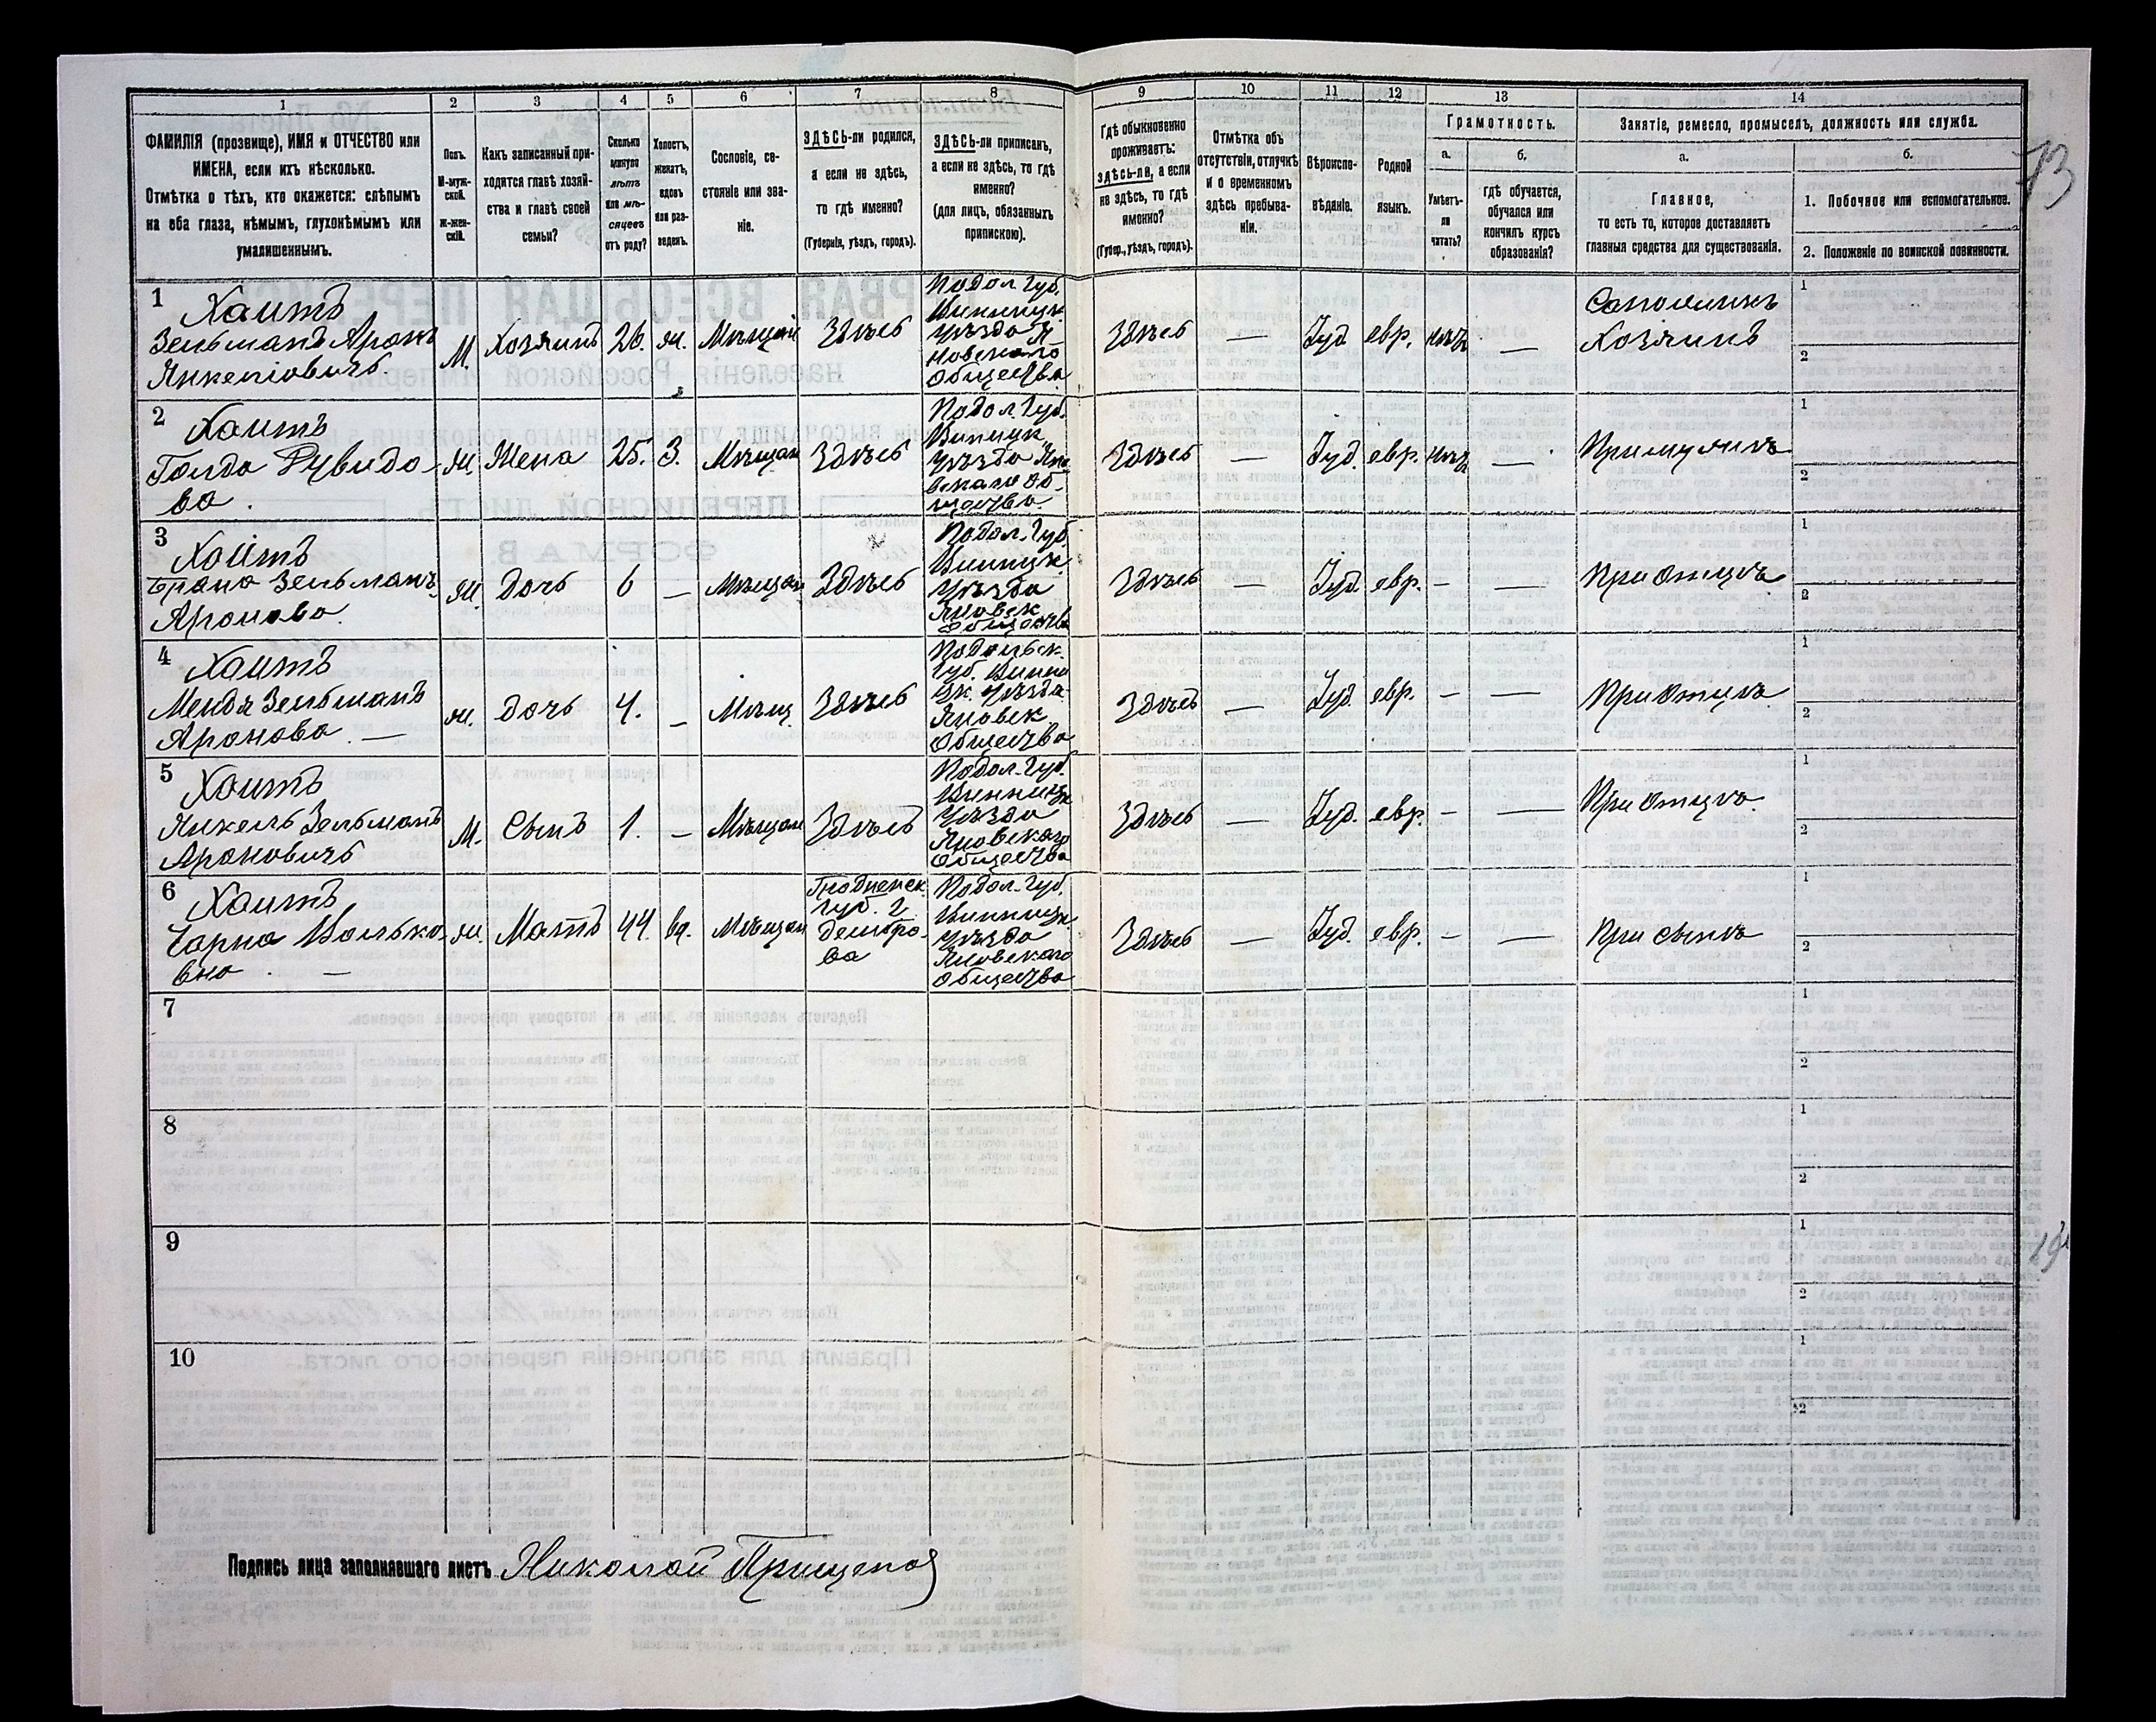 1
2
3
4
5
6
7
8
9
10
11
12
13
14
ФАМИЛІЯ (прозвище), ИМЯ и ОТЧЕСТВО или
ИМЕНА, если ихъ нѣсколько.
Отмѣтка о тѣхъ, кто окажется: слѣпымъ
на оба глаза, нѣмымъ, глухонѣмымъ или
умалишеннымъ.
Полъ.
М-муж-
ской.
Ж-жен-
скій.
Какъ записанный при-
ходится главѣ хозяй-
ства и главѣ своей
семьи?
Сколько
минуло
лѣтъ
или мѣ-
сяцевъ
отъ роду?
Холостъ,
женатъ,
вдовъ
или раз-
веденъ.
Сословіе, со-
стояніе или зва-
ніе.
ЗДѢСЬ-ли родился,
а если не здѣсь,
то гдѣ именно?
(Губернія, уѣздъ, городъ).
ЗДѢСЬ-ли приписанъ,
а если не здѣсь, то гдѣ
именно?
(для лицъ, обязанныхъ
припискою).
Гдѣ обыкновенно
проживаетъ:
здѣсь-ли, а если
не здѣсь, то гдѣ
именно?
(Губер., уѣздъ, городъ).
Отмѣтка объ
отсутствіи, отлучкѣ
и о временномъ
здѣсь пребыва-
ніи.
Вѣроиспо-
вѣданіе.
Родной
языкъ.
Грамотность.
а.
б.
Умѣетъ-
ли
читать?
гдѣ обучается,
обучался или
кончилъ курсъ
образованія?
Занятіе, ремесло, промыселъ, должность или служба.
а.
б.
Главное,
то есть то, которое доставляетъ
главныя средства для существованія.
1. Побочное или вспомогательное.
2. Положеніе по воинской повинности.
1 Хаитъ
Зельманъ Аронъ
Янкелювичъ.
М. Хозяинъ 26. ж. Мѣщан Здѣсь
Подол. Губ.
Винницк.
Уѣзда Я-
новскаго
Общества
Здѣсь — Іуд евр. нѣтъ —
Сапожникъ
Хозяинъ
1
2
2 Хаитъ
Голда Рувидо-
ва.
ж. Жена 25. З. Мѣщан Здѣсь
Подол. Губ.
Винницк
Уѣзда Яно
вскаго Об-
щества.
Здѣсь — Іуд. евр. нѣтъ — При мужѣ
1
2
3 Хаитъ
Брана Зельманъ
Аронова.
ж. дочь 6 — Мѣщан Здѣсь
Подол. Губ.
Винницк.
Уѣзда
Яновск
Общества
Здѣсь — Іуд. евр. — — При отцѣ
1
2
4 Хаитъ
Менда Зельманъ
Аронова. —
ж. дочь 4. — Мѣщ. Здѣсь
Подольск.
Губ. Винни
цк. Уѣзда
Яновск
Общества
Здѣсь — Іуд. евр. — — При отцѣ
1
2
5 Хаитъ
Янкель Зельманъ
Ароновичъ
М. Сынъ 1. — Мѣщан Здѣсь
Подол. Губ.
Винницк
Уѣзда
Яновскаго
Общества
Здѣсь — Іуд. евр. — — При отцѣ
1
2
6 Хаитъ
Чарна Волько-
вна. —
ж. Мать 44. вд. Мѣщан
Гродненск
губ. г.
Домбро-
ва
Подол. Губ.
Винницк.
Уѣзда
Яновскаго
Общества
Здѣсь — Іуд. евр. — — При сынѣ
1
2
7
1
2
8
1
2
9
1
2
10
1
2
Подпись лица заполнявшаго листъ Николай Прищепов